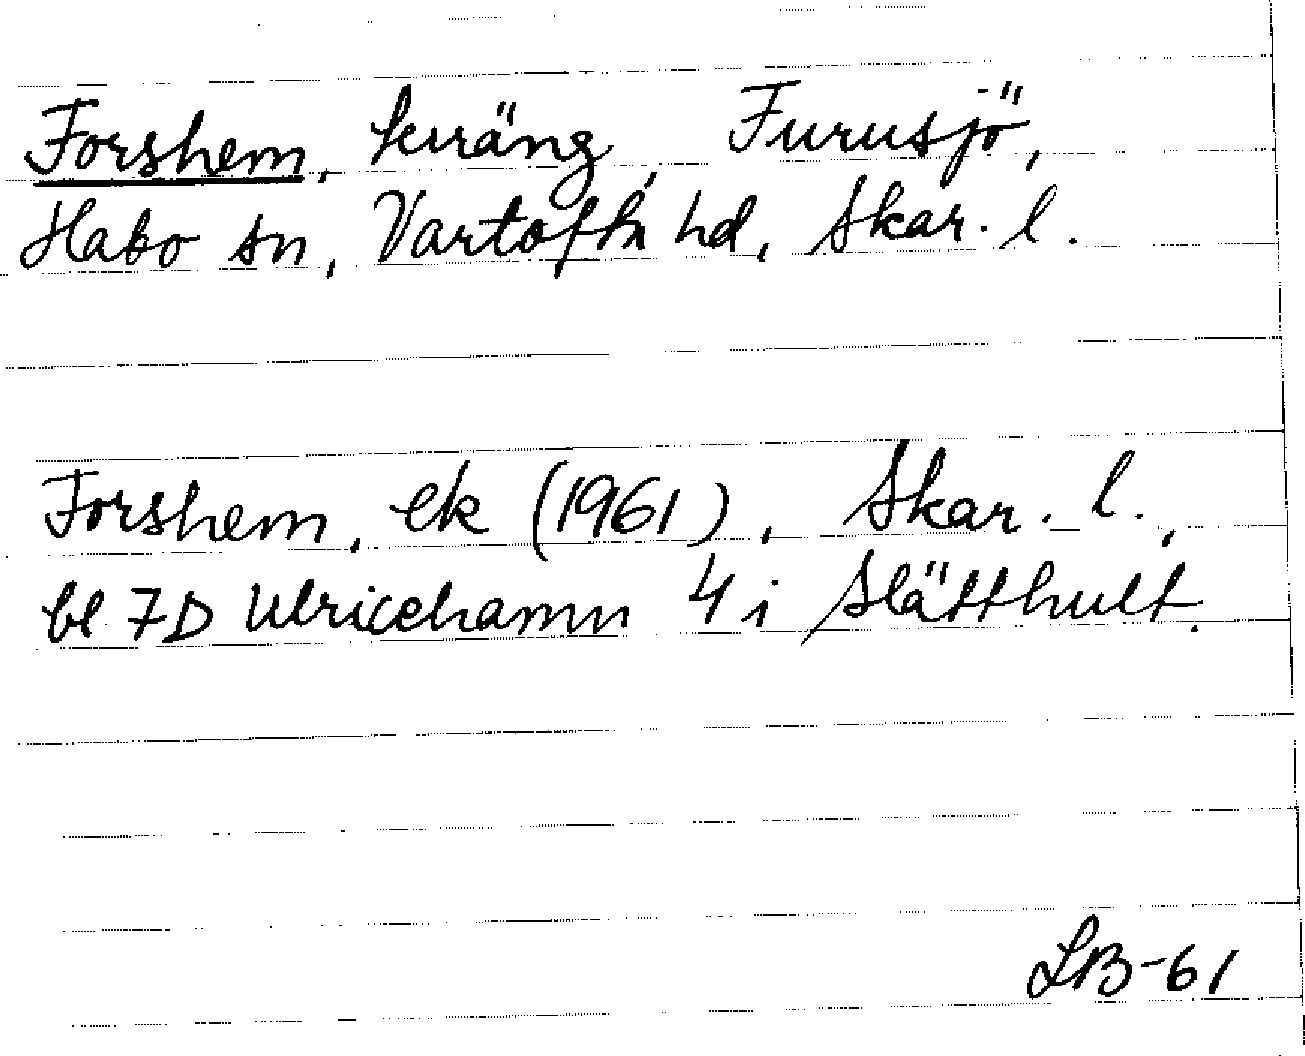 Forshem, terräng, Furusjö,
Habo sn, Vartofta hd, Skar. l.
Forshem, ek (1961), Skar. l.,
bl 7D Ulricehamn 4 i Slätthult.
LB-61